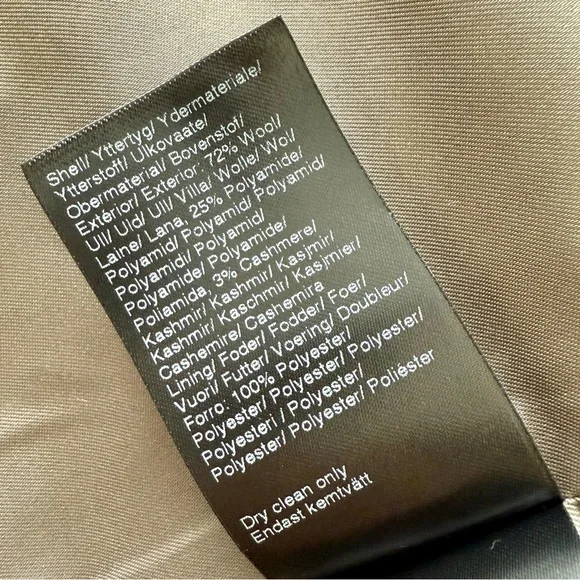 Shell/ Yttertyg/ Ydermateriale/
Ytterstoff/ Ulkovaate/
Obermaterial/ Bovenstof/
Extérior/ Exterior: 72% Wool/
Ull/ Uld/ Ull/ Villa/ Wolle/ Wol/
Laine/ Lana, 25% Polyamide/
Polyamid/ Polyamid/ Polyamid/
Polyamidi/ Polyamid/
Polyamide/ Polyamide/
Poliamida, 3% Cashmere/
Kashmir/ Kashmir/ Kasjmir/
Kashmir/ Kaschmir/ Kasjmier/
Cashemire/ Casnemira
Lining/ Foder/ Fodder/ Foer/
Vuori/ Futter/ Voering/ Doubleur/
Forro: 100% Polyester/
Polyester/ Polyester/ Polyester/
Polyesteri/ Polyester/
Polyester/ Polyester/ Poliéster
Dry clean only
Endast kemtvätt